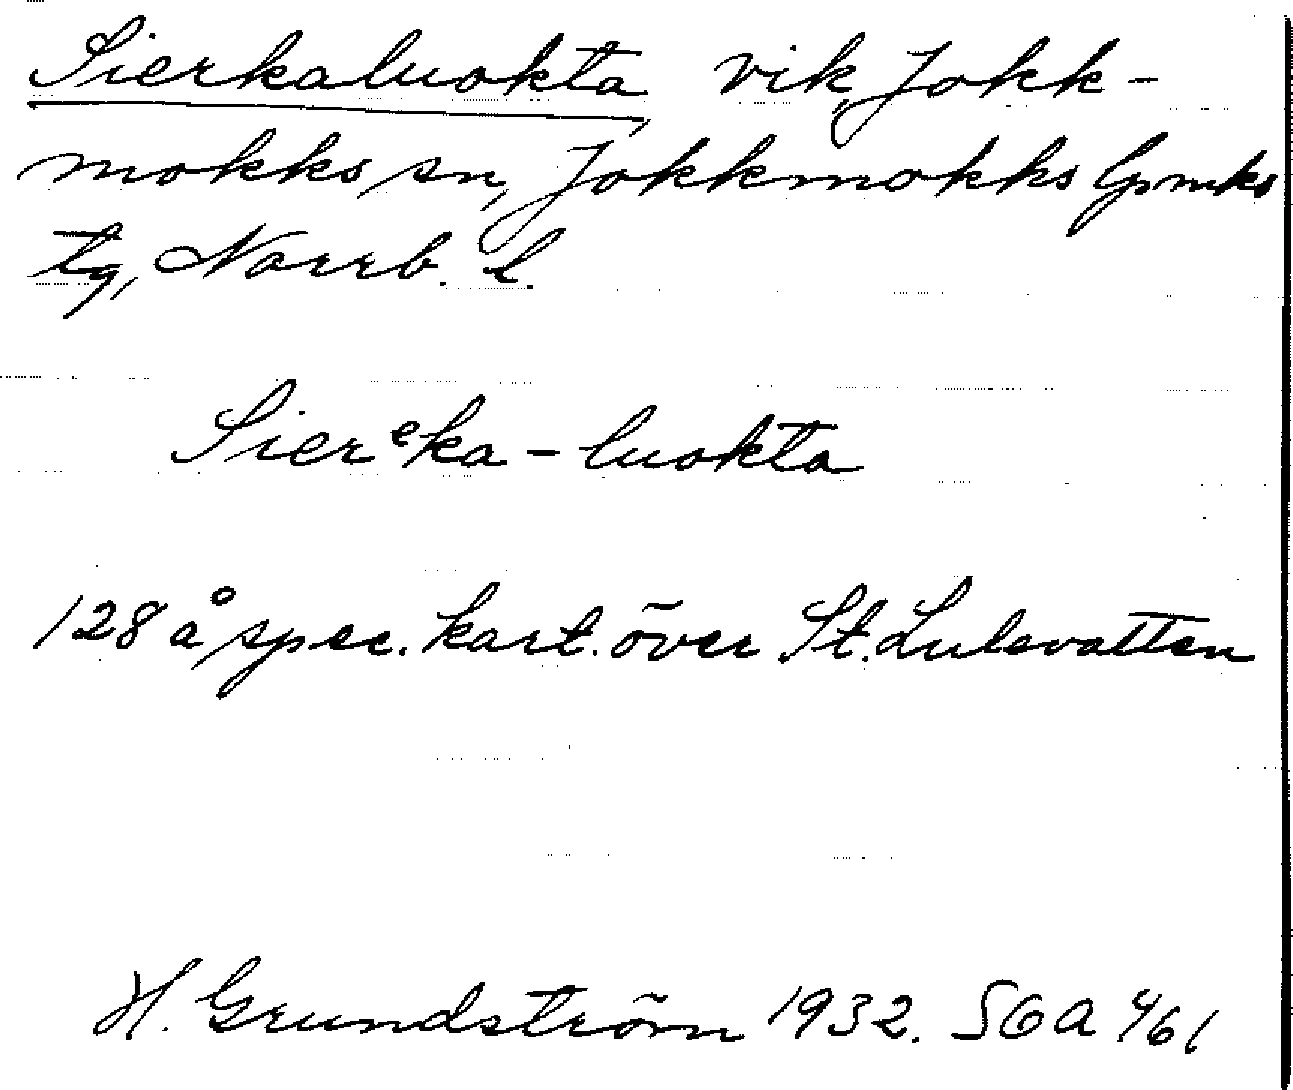 Sierkaluokta vik, Jokk-
mokks sn, Jokkmokks lpmks
tg, Norrb. l.
Sierᵉka - luokta
128 å spec. kart. över St. Lulevatten
H. Grundström 1932. SOA 4/61